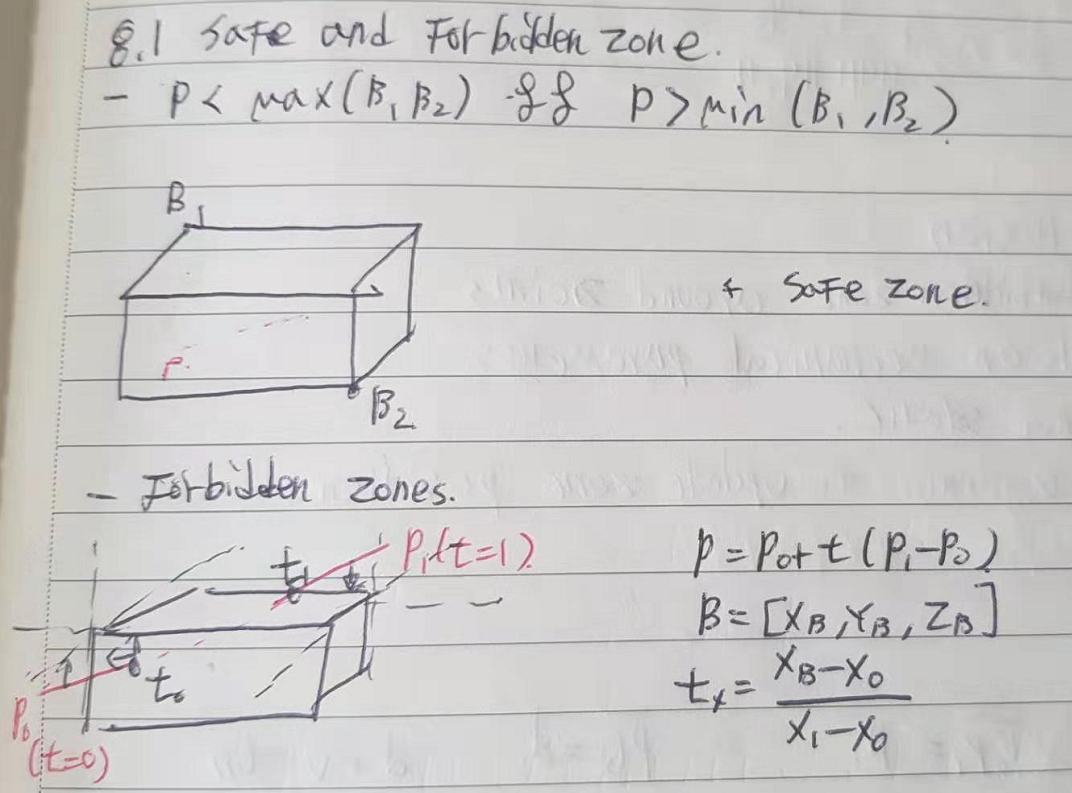 8.1 Safe and Forbidden zone.
- P < max(B₁, B₂) && P > min (B₁, B₂)
B₁
+ Safe zone.
P
B₂
- Forbidden zones.
t₁ P₁(t=1)
P = P₀ + t (P₁-P₀)
B = [X_B, Y_B, Z_B]
t₀
t_x = (X_B - X₀) / (X₁ - X₀)
P₀
(t=0)